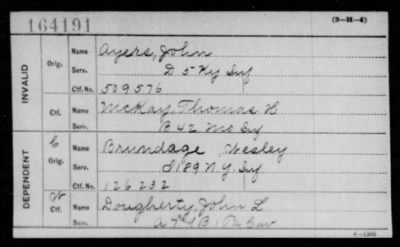 164191
(3-H-4)
INVALID
Orig.
Name Ayers, John
Serv. D 5 Ky Inf
Ctf. No. 509576
Ctf.
Name McKay, Thomas B
Serv. B 42 Mo Inf
DEPENDENT
C
Orig.
Name Brundage, Wesley
Serv. I 189 N.Y. Inf
Ctf. No. 126232
W
Ctf.
Name Dougherty, John L
Serv. Cav